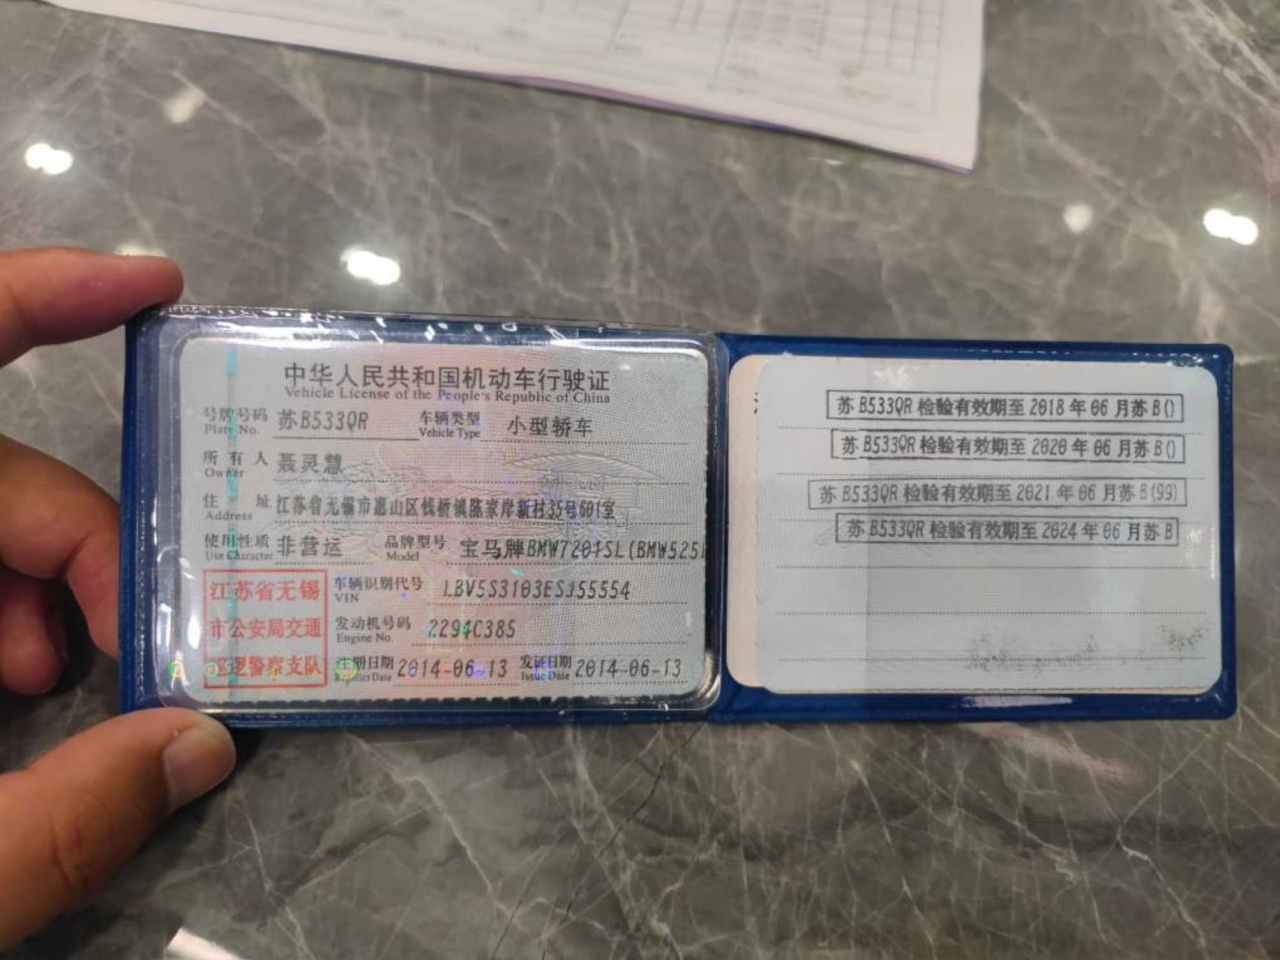 中华人民共和国机动车行驶证
Vehicle License of the People's Republic of China
号牌号码 苏B533QR 车辆类型 小型轿车
Plate No. Vehicle Type
所有人 聂灵慧
Owner
住址 江苏省无锡市惠山区钱桥镇陈家岸新村35号601室
Address
使用性质 非营运 品牌型号 宝马牌BMW7201SL(BMW525
Use Character Model
江苏省无锡
市公安局交通
巡逻警察支队
车辆识别代号 LBV5S3103ESJ55554
VIN
发动机号码 2294C385
Engine No.
注册日期 2014-06-13 发证日期 2014-06-13
Register Date Issue Date
苏B533QR检验有效期至2018年06月苏B()
苏B533QR检验有效期至2020年06月苏B()
苏B533QR检验有效期至2021年06月苏B(99)
苏B533QR检验有效期至2024年06月苏B